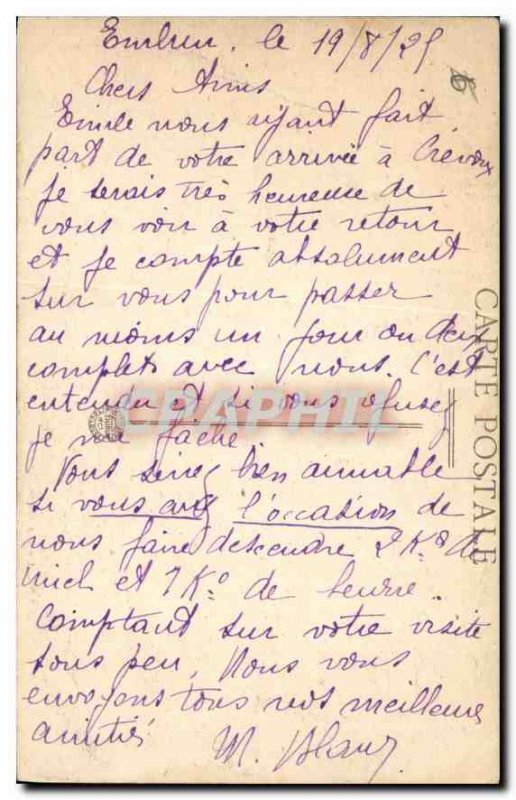 Embrun, le 19/8/25
Chers Amis
Emile nous ayant fait
part de votre arrivée à Crévoux
je serais très heureuse de
vous voir à votre retour
et je compte absolument
sur vous pour passer
au moins un jour ou deux
complets avec nous. C'est
entendu et si vous refusez
je me fache.
Vous seriez bien aimable
si vous avez l'occasion de
nous faire descendre 2 K.os de
miel et 7 K.o de beurre.
Comptant sur votre visite
sous peu, Nous vous
envoyons tous nos meilleures
amitiés
M.
CARTE POSTALE
CARAPHIL